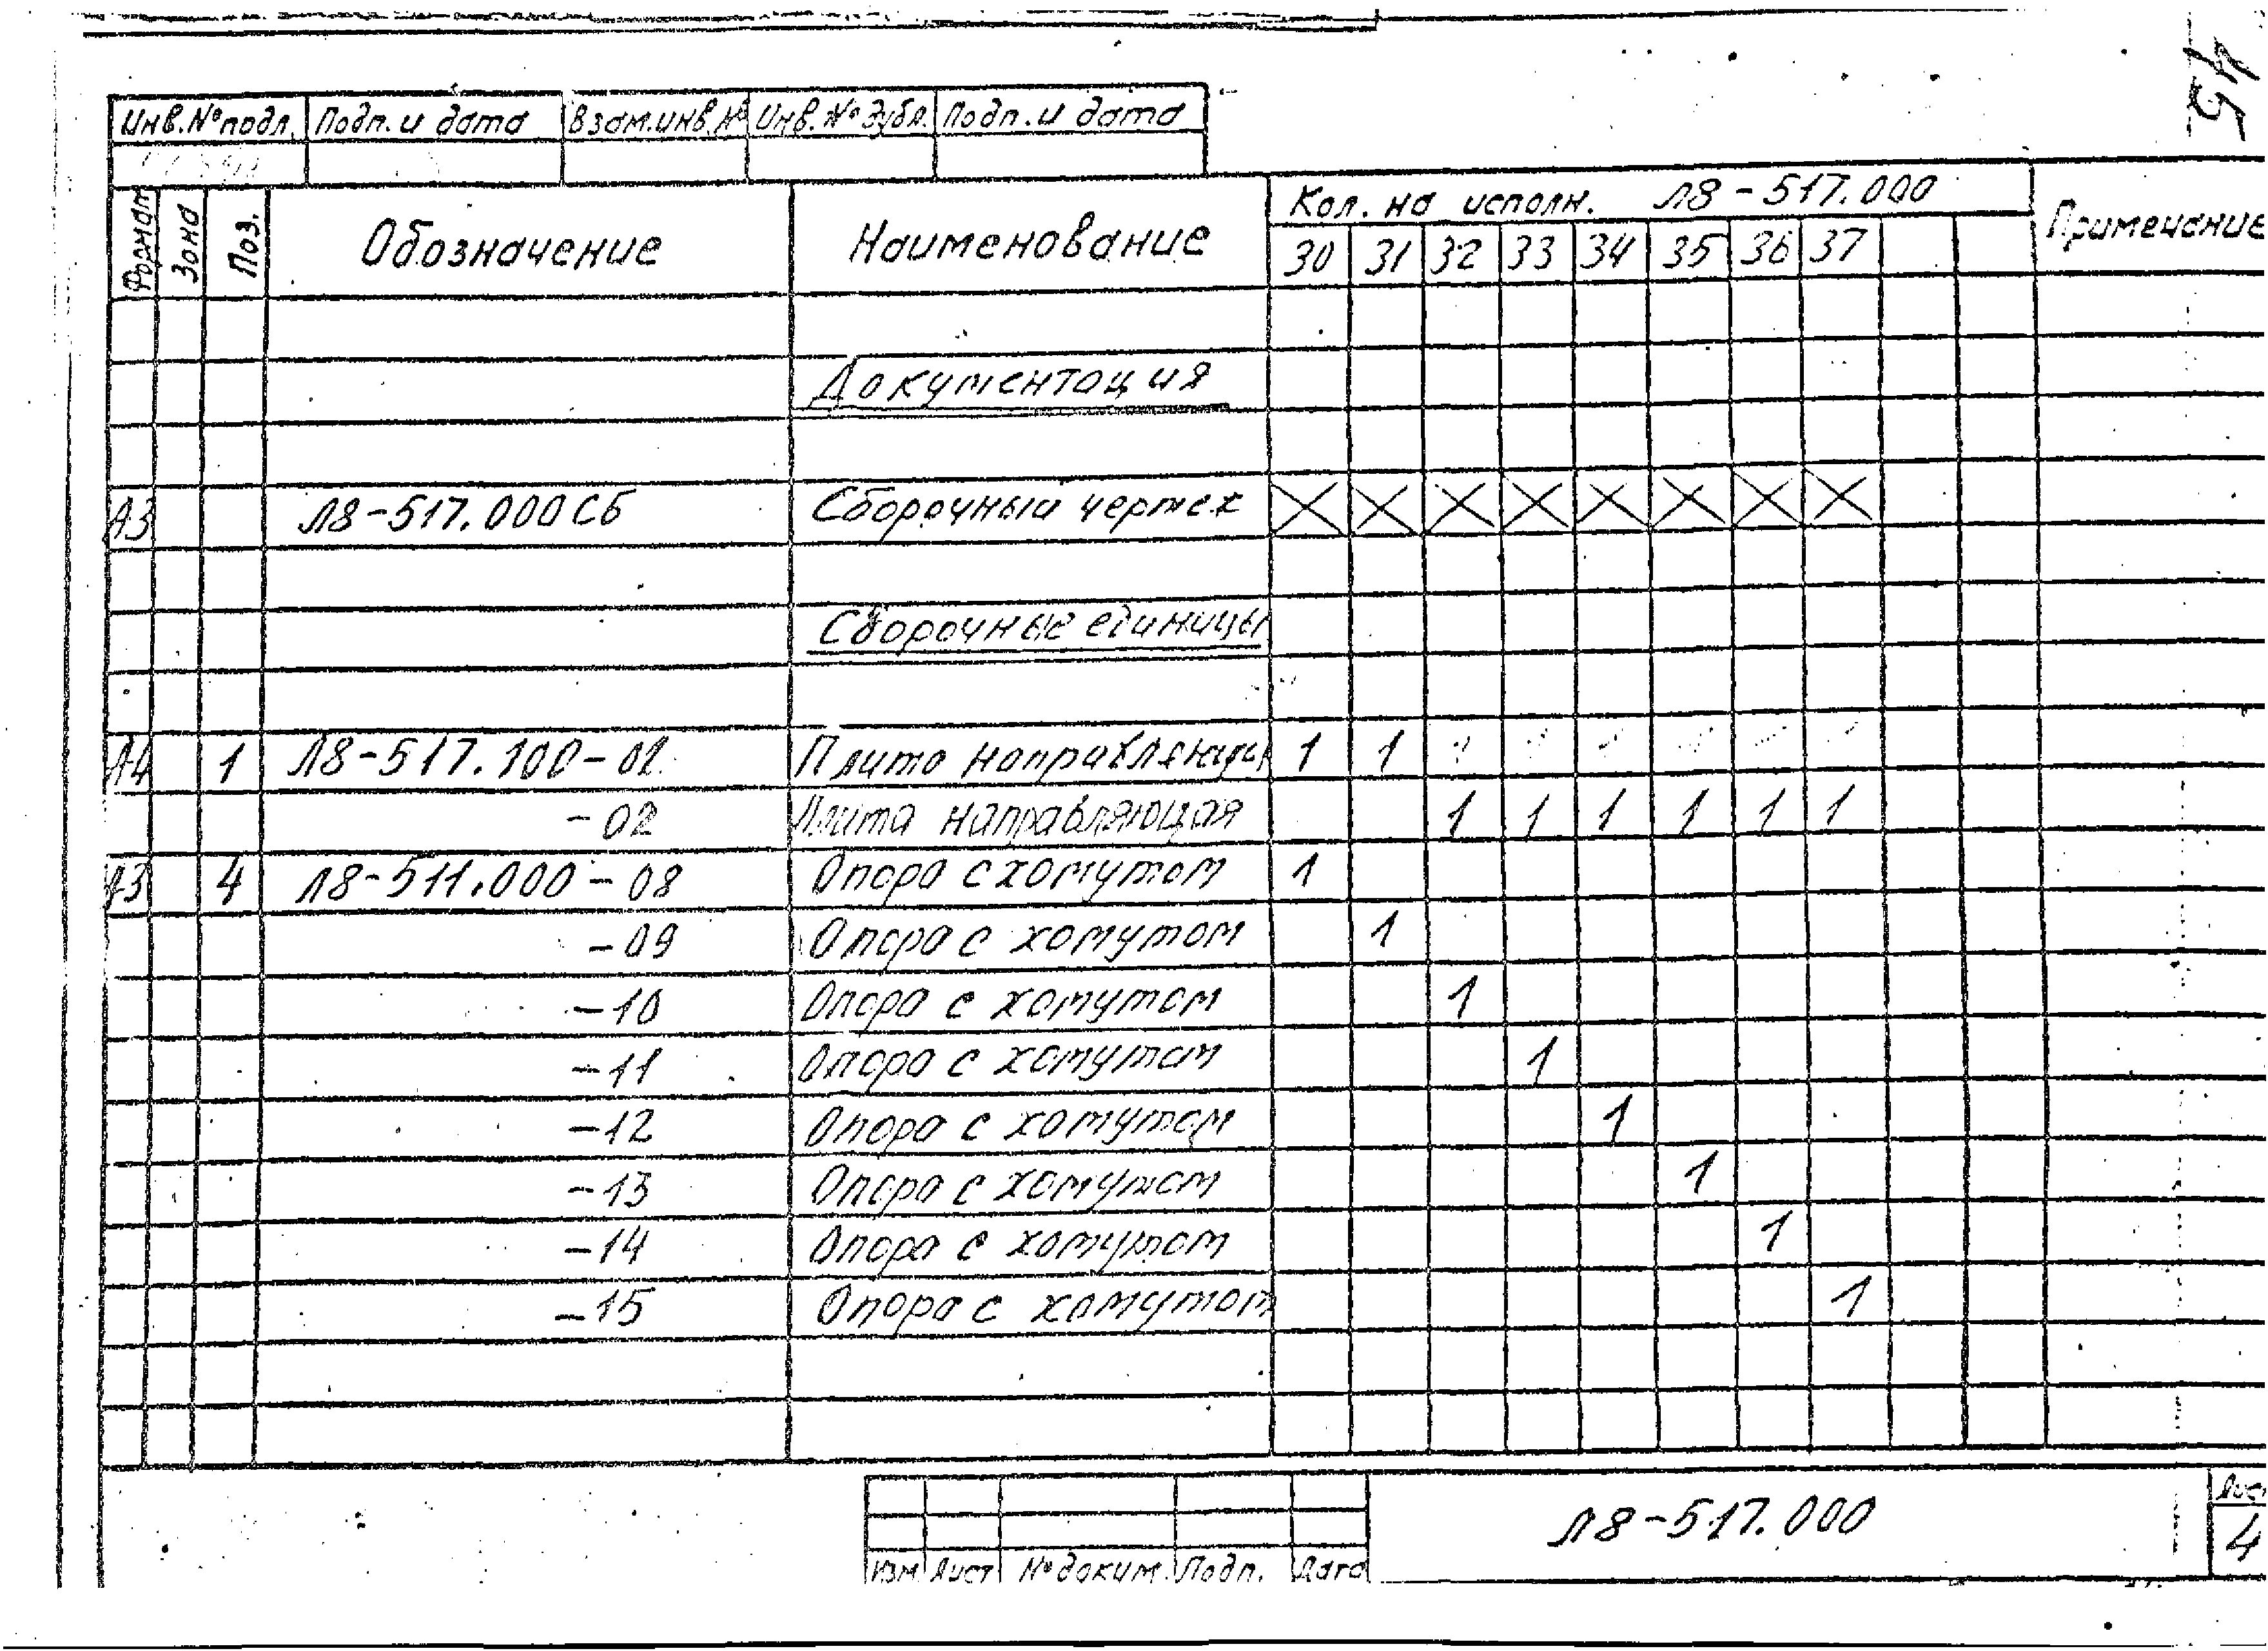 45
Инв.№подл. Подп. и дата Взам.инв.№ Инв.№дубл. Подп. и дата
Формат Зона Поз. Обозначение Наименование Кол. на исполн. Л8-517.000 Примечание
30 31 32 33 34 35 36 37
Документация
А3 Л8-517.000СБ Сборочный чертеж
Сборочные единицы
А4 1 Л8-517.100- Плита направляющая 1 1
-02 Плита направляющая 1 1 1 1 1 1
А3 4 Л8-511.000-08 Опора с хомутом 1
-09 Опора с хомутом 1
-10 Опора с хомутом 1
-11 Опора с хомутом 1
-12 Опора с хомутом 1
-13 Опора с хомутом 1
-14 Опора с хомутом 1
-15 Опора с хомутом 1
Л8-517.000 Лист
4
Изм Лист №докум. Подп. Дата